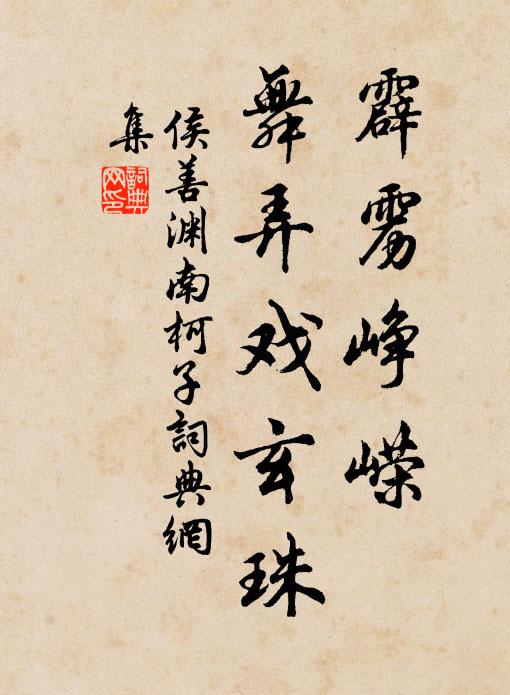 霹雳峥嵘
舞弄戏玄珠
侯善渊南柯子詞典網
集
詞典
网印